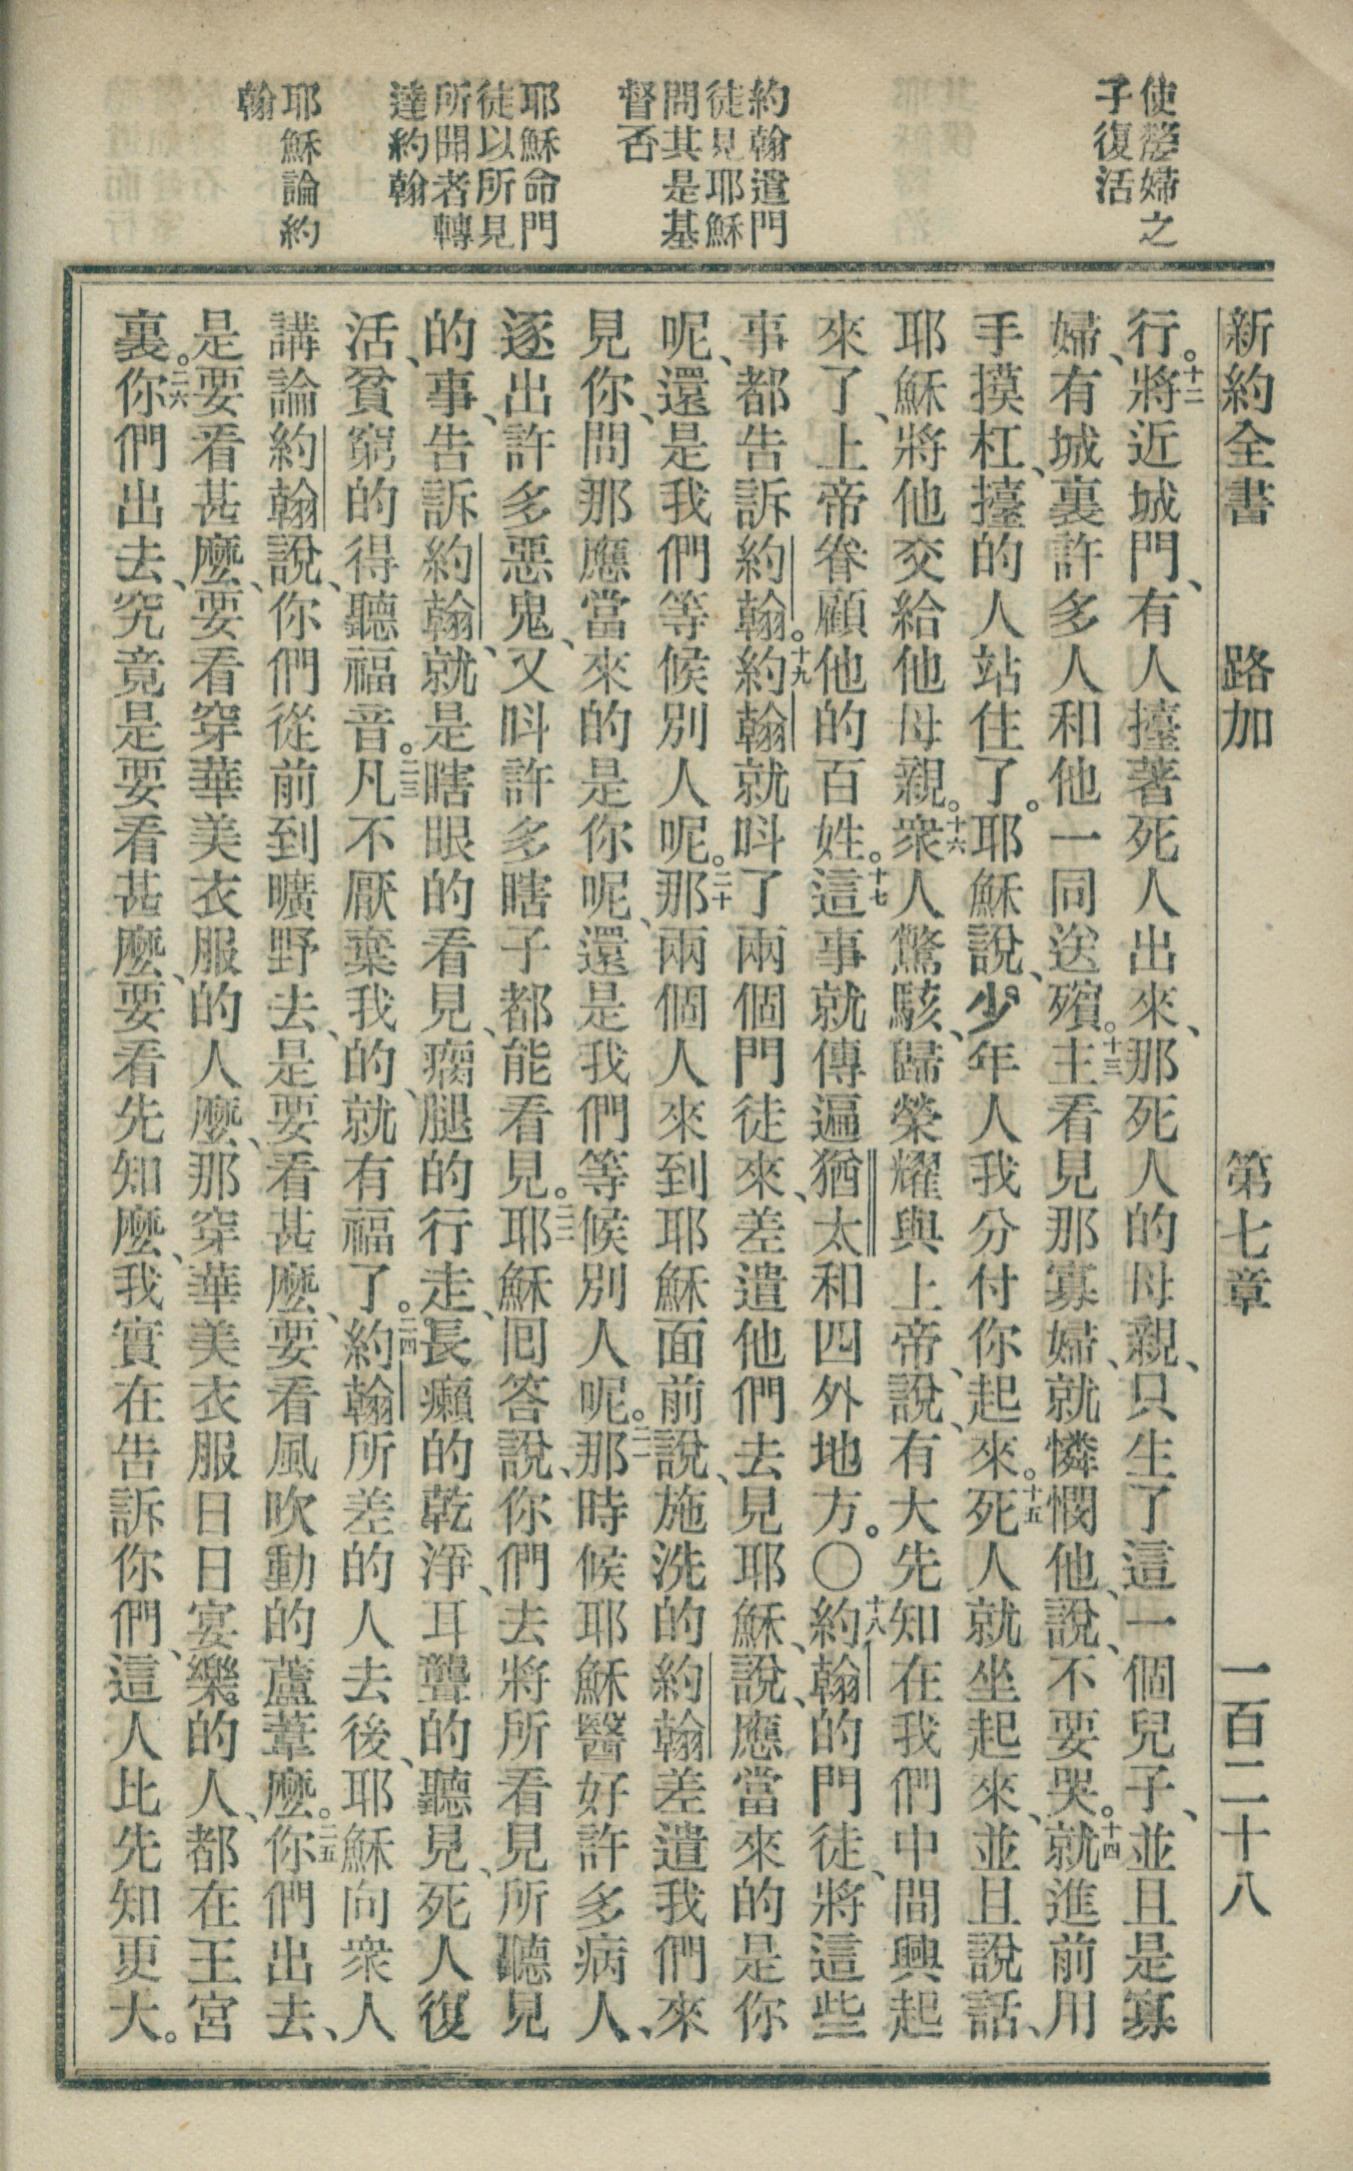 使嫠婦之
子復活
約翰遣門
徒見耶穌
問其是基
督否
耶穌命門
徒以所見
所聞者轉
達約翰
耶穌論約
翰
新約全書 路加 第七章 一百二十八
行。十二將近城門、有人擡著死人出來、那死人的母親、只生了這一個兒子、並且是寡
婦、有城裏許多人和他一同送殯。十三主看見那寡婦、就憐憫他、說、不要哭。十四就進前用
手摸杠、擡的人站住了。耶穌說、少年人我分付你起來。十五死人就坐起來、並且說話、
耶穌將他交給他母親。十六衆人驚駭、歸榮耀與上帝、說、有大先知在我們中間興起
來了、上帝眷顧他的百姓。十七這事就傳遍猶太和四外地方。〇十八約翰的門徒、將這些
事都告訴約翰。十九約翰就呌了兩個門徒來、差遣他們去見耶穌、說、應當來的是你
呢、還是我們等候別人呢。二十那兩個人來到耶穌面前說、施洗的約翰差遣我們來
見你、問那應當來的是你呢、還是我們等候別人呢。二一那時候耶穌醫好許多病人、
逐出許多惡鬼、又呌許多瞎子都能看見。二二耶穌囘答說、你們去將所看見所聽見
的事、告訴約翰、就是瞎眼的看見、瘸腿的行走、長癩的乾淨、耳聾的聽見、死人復
活、貧窮的得聽福音。二三凡不厭棄我的、就有福了。二四約翰所差的人去後、耶穌向衆人
講論約翰說、你們從前到曠野去、是要看甚麼、要看風吹動的蘆葦麼。二五你們出去、
是要看甚麼、要看穿華美衣服的人麼、那穿華美衣服日日宴樂的人、都在王宮
裏。二六你們出去、究竟是要看甚麼、要看先知麼、我實在告訴你們、這人比先知更大。